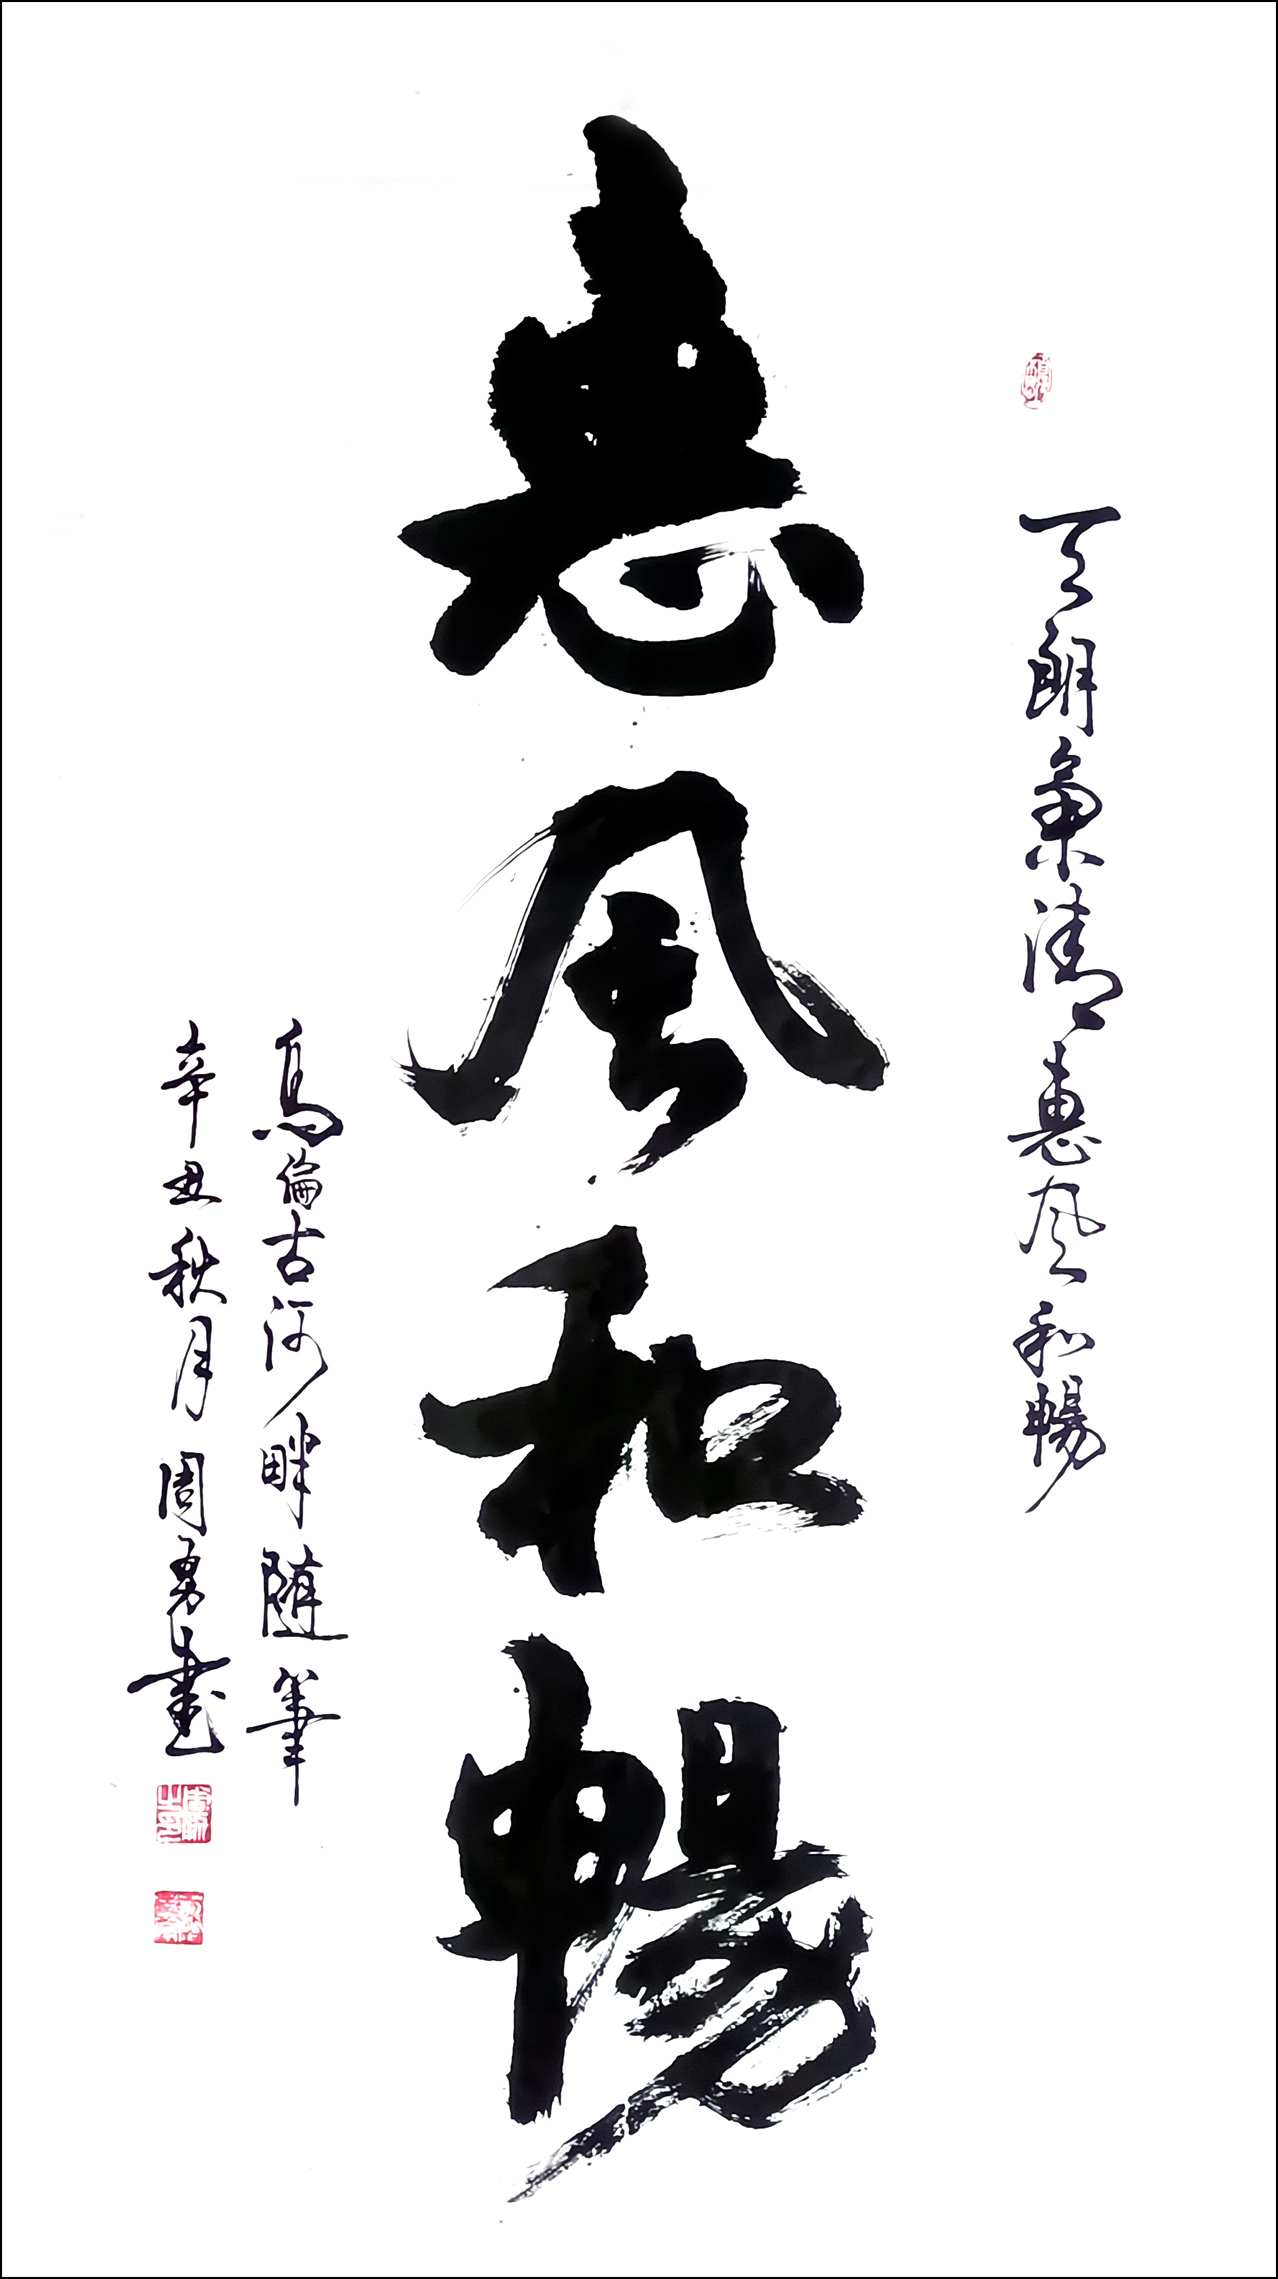 天朗氣清惠風和暢
惠風和暢
烏倫古河畔随筆
辛丑秋月周勇書